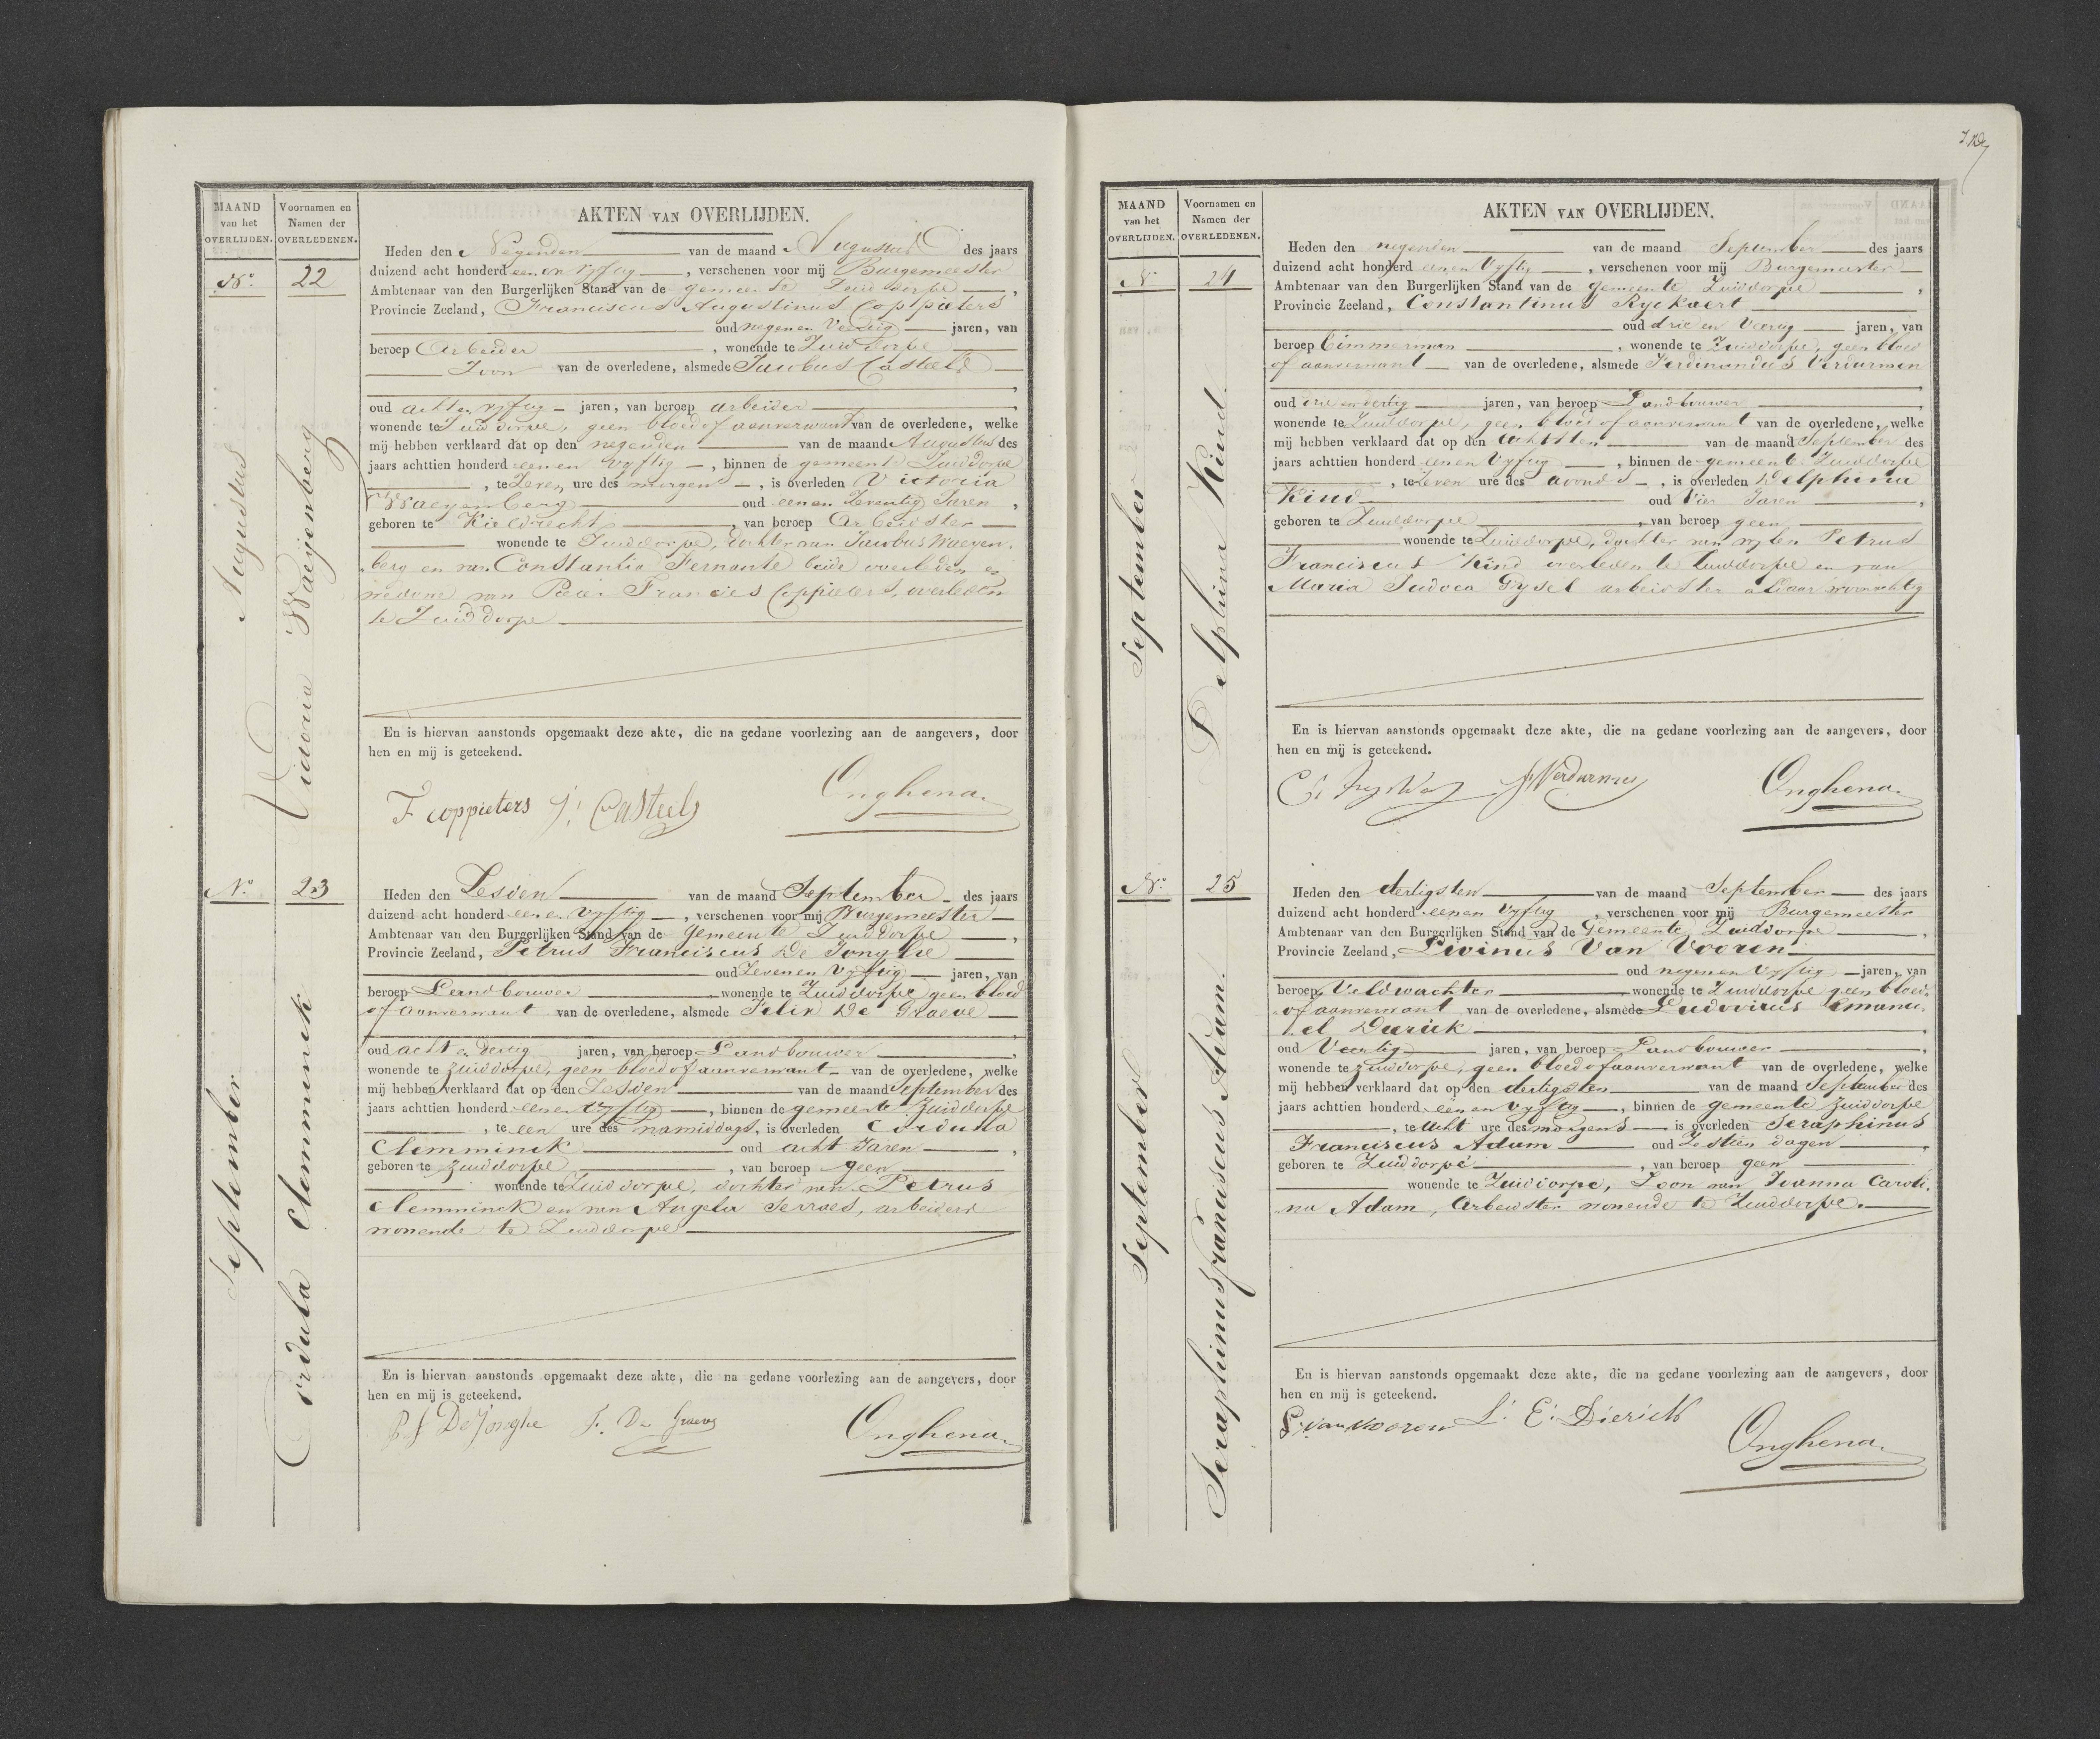 MAAND
van het
OVERLIJDEN.
Voornamen en
Namen der
OVERLEDENEN.
AKTEN VAN OVERLIJDEN.
No. 22
Augustus
Victoria Waeijenberg
Heden den Negenden van de maand Augustus des jaars
duizend acht honderd een en vyftig, verschenen voor mij Burgemeester
Ambtenaar van den Burgerlijken Stand van de gemeente Zuiddorpe,
Provincie Zeeland, Franciscus Augustinus Coppieters
oud negen en Veertig jaren, van
beroep Arbeider, wonende te Zuiddorpe
Zoon van de overledene, alsmede Jacobus Casteels
,
oud acht en vyftig jaren, van beroep arbeider,
wonende te Zuiddorpe, geen bloed of aanverwant van de overledene, welke
mij hebben verklaard dat op den negenden van de maand Augustus des
jaars achttien honderd een en vyftig, binnen de gemeente Zuiddorpe
, te Zeven ure des morgens, is overleden Victoria
Waeyenberg oud een en Zeventig Jaren,
geboren te Kieldrecht, van beroep Arbeidster
wonende te Zuiddorpe, dochter van Jacobus Waeyen-
berg en van Constantia Fernante beide overleden en
weduwe van Pieter Francies Coppieters, overleden
te Zuiddorpe
En is hiervan aanstonds opgemaakt deze akte, die na gedane voorlezing aan de aangevers, door
hen en mij is geteekend.
F coppieters J: Casteels Onghena.
No. 23
September
Cordula Clemminck
Heden den Zesden van de maand September des jaars
duizend acht honderd een en vyftig, verschenen voor mij Burgemeester
Ambtenaar van den Burgerlijken Stand van de Gemeente Zuiddorpe,
Provincie Zeeland, Petrus Franciscus De Jonghe
oud Zeven en Vyftig jaren, van
beroep Landbouwer, wonende te Zuiddorpe geen bloed
of aanverwant van de overledene, alsmede Felix De Graeve
,
oud acht en dertig jaren, van beroep Landbouwer,
wonende te Zuiddorpe, geen bloed of aanverwant van de overledene, welke
mij hebben verklaard dat op den Zesden van de maand September des
jaars achttien honderd een en vyftig, binnen de gemeente Zuiddorpe
, te een ure des namiddags, is overleden Cordula
Clemminck oud acht Jaren,
geboren te Zuiddorpe, van beroep geen
wonende te Zuiddorpe, dochter van Petrus
Clemminck en van Angela Serraes, arbeiders
wonende te Zuiddorpe
En is hiervan aanstonds opgemaakt deze akte, die na gedane voorlezing aan de aangevers, door
hen en mij is geteekend.
P f De Jonghe F. De Graeve Onghena.
MAAND
van het
OVERLIJDEN.
Voornamen en
Namen der
OVERLEDENEN.
AKTEN VAN OVERLIJDEN.
N. 24
September
Delphina Kind.
Heden den negenden van de maand September des jaars
duizend acht honderd een en Vyftig, verschenen voor mij Burgemeester
Ambtenaar van den Burgerlijken Stand van de gemeente Zuiddorpe,
Provincie Zeeland, Constantinus Ryckaert
oud drie en Veertig jaren, van
beroep Timmerman, wonende te Zuiddorpe, geen bloed
of aanverwant van de overledene, alsmede Ferdinandus Verdurmen
,
oud drie en dertig jaren, van beroep Landbouwer,
wonende te Zuiddorpe, geen bloed of aanverwant van de overledene, welke
mij hebben verklaard dat op den achtsten van de maand September des
jaars achttien honderd een en Vyftig, binnen de gemeente Zuiddorpe
, te Zeven ure des avonds, is overleden Delphina
Kind oud Vier Jaren,
geboren te Zuiddorpe, van beroep geen
wonende te Zuiddorpe, dochter van wylen Petrus
Franciscus Kind overleden te Zuiddorpe en van
Maria Judoca Gysel arbeidster aldaar woonachtig
En is hiervan aanstonds opgemaakt deze akte, die na gedane voorlezing aan de aangevers, door
hen en mij is geteekend.
F Verdurmen Onghena.
No. 25
September
Seraphinus franciscus Adam.
Heden den dertigsten van de maand September des jaars
duizend acht honderd een en Vyftig, verschenen voor mij Burgemeester
Ambtenaar van den Burgerlijken Stand van de Gemeente Zuiddorpe,
Provincie Zeeland, Livinus Van Vooren
oud negen en Vyftig jaren, van
beroep Veldwachter, wonende te Zuiddorpe geen bloed
of aanverwant van de overledene, alsmede Ludovicus Emanu-
el Durick,
oud Veertig jaren, van beroep Landbouwer,
wonende te Zuiddorpe, geen bloed of aanverwant van de overledene, welke
mij hebben verklaard dat op den dertigsten van de maand September des
jaars achttien honderd een en vyftig, binnen de gemeente Zuiddorpe
, te Acht ure des morgens is overleden Seraphinus
Franciscus Adam oud Zestien dagen,
geboren te Zuiddorpe, van beroep geen
wonende te Zuiddorpe, Zoon van Joanna Caroli-
na Adam, Arbeidster wonende te Zuiddorpe.
En is hiervan aanstonds opgemaakt deze akte, die na gedane voorlezing aan de aangevers, door
hen en mij is geteekend.
L: van Vooren L: E: Dierick Onghena.